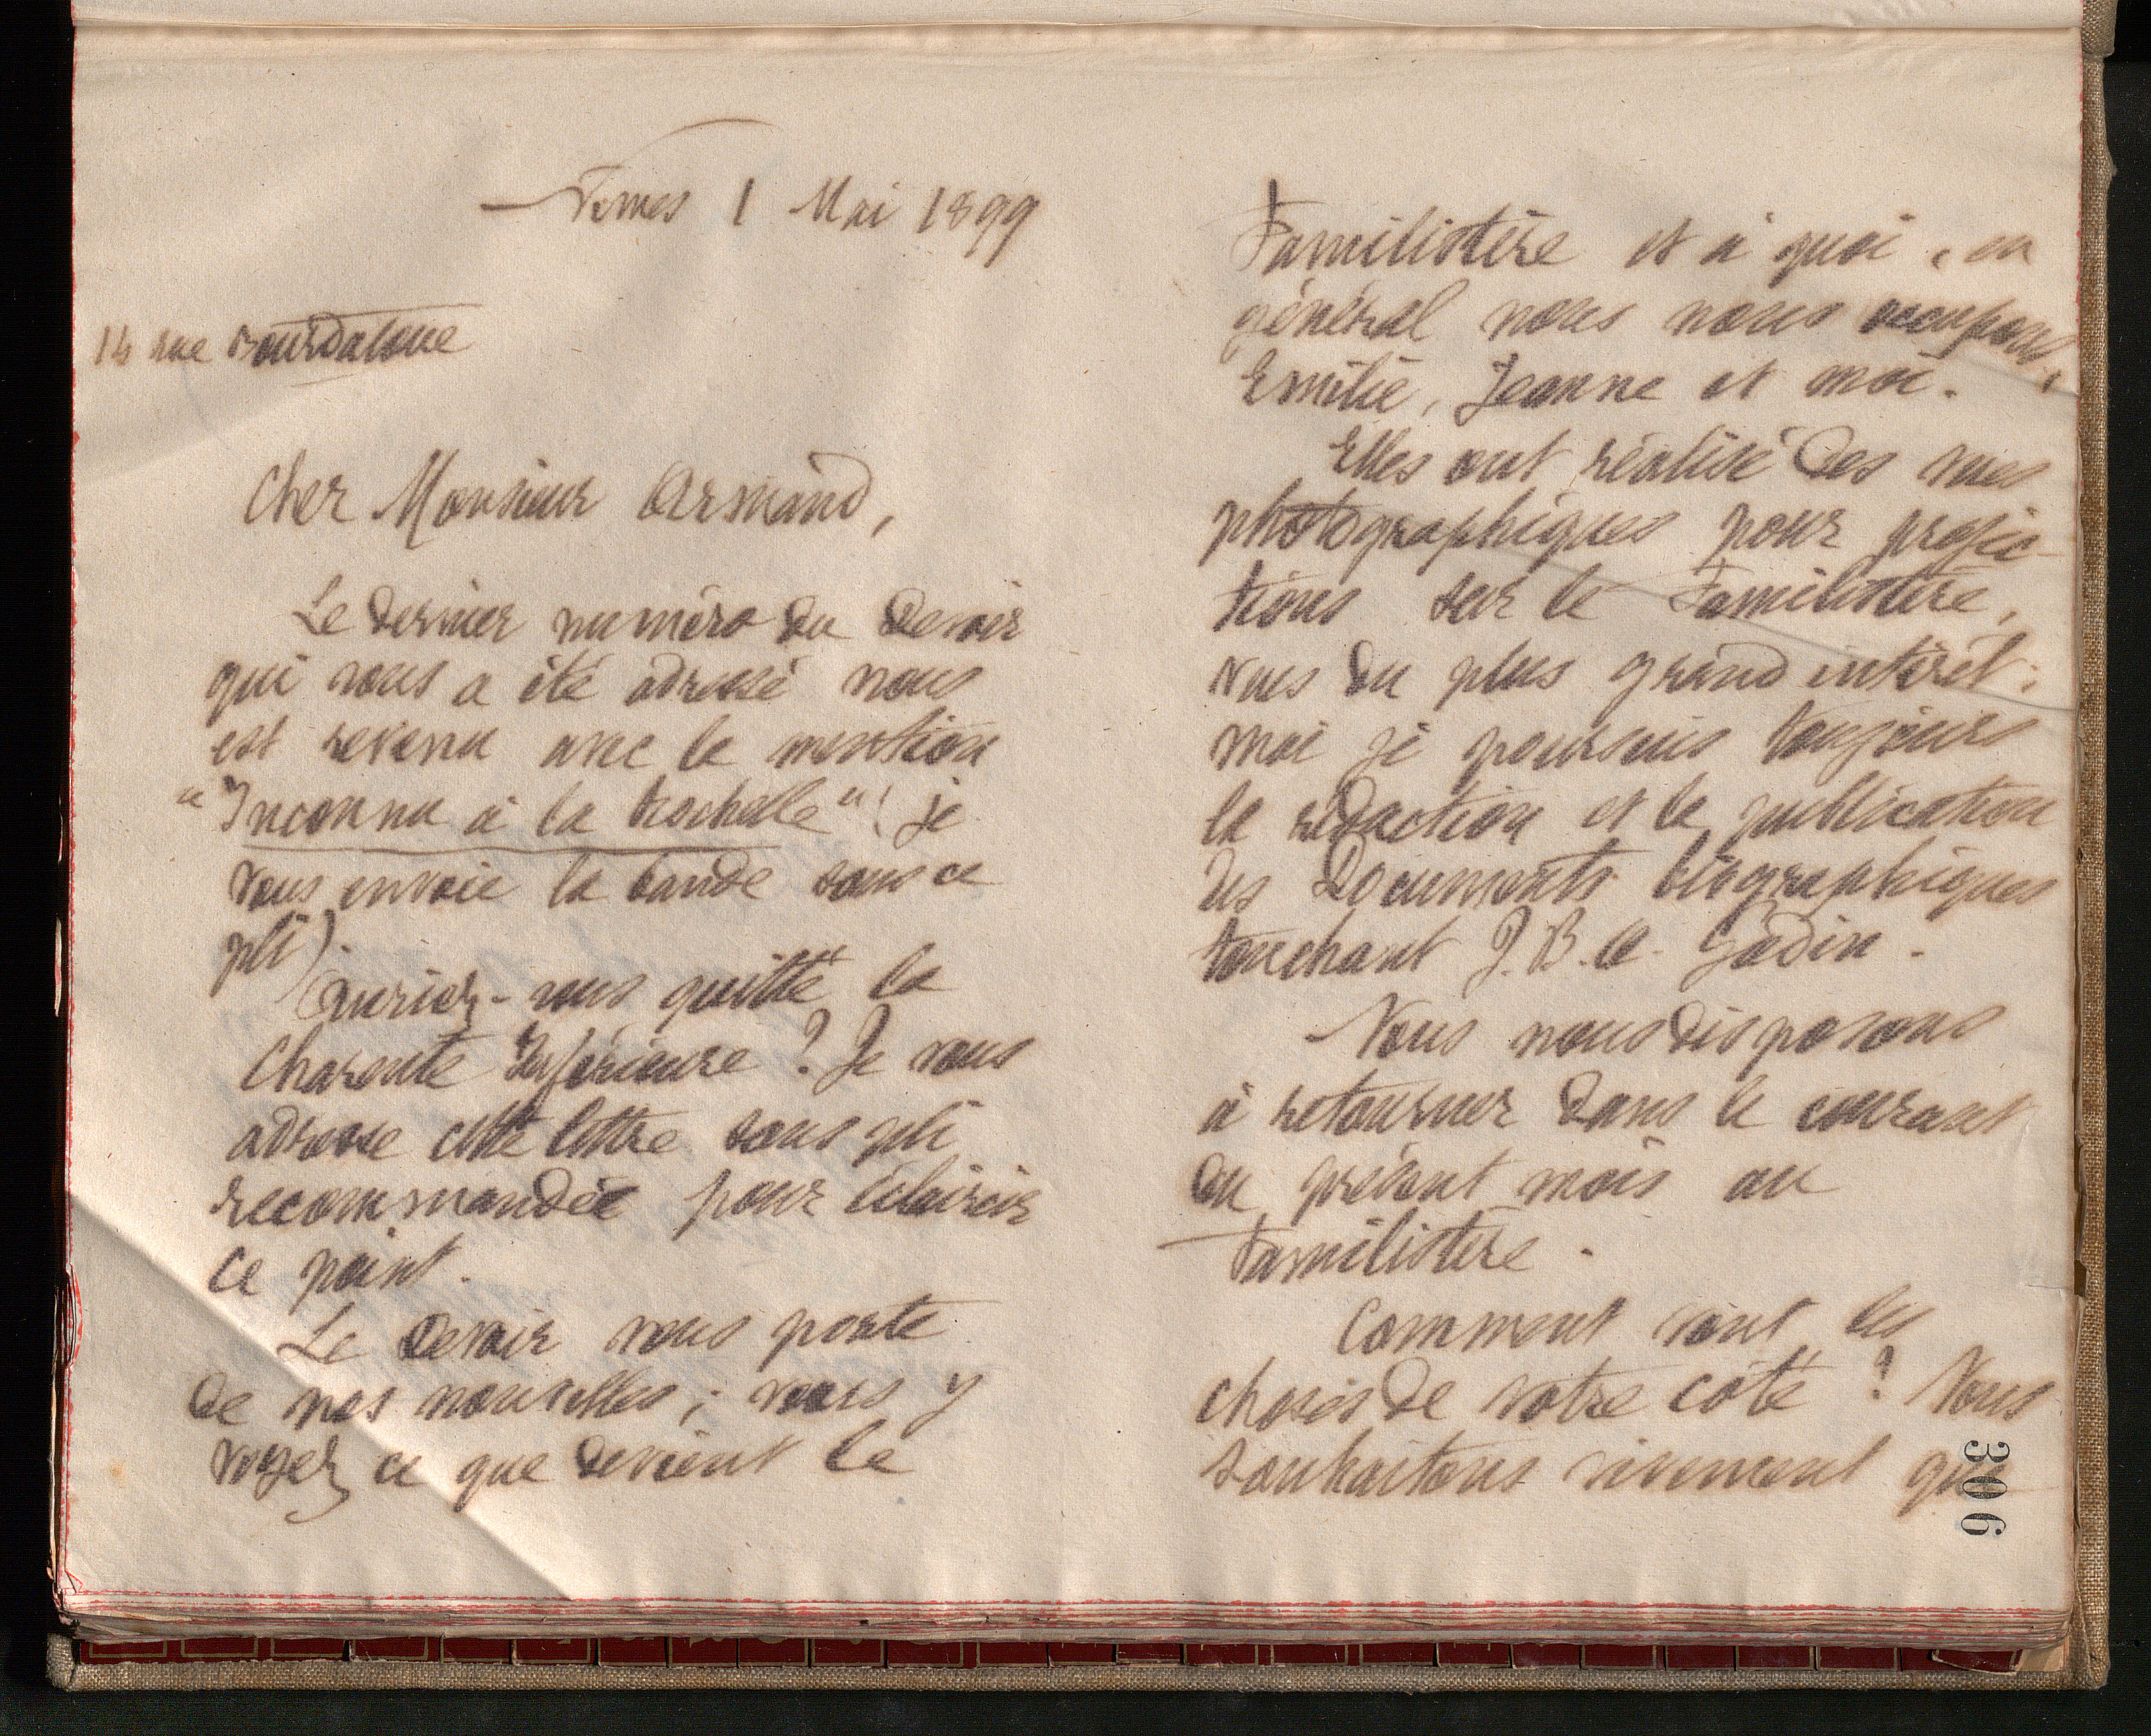 Nimes 1 Mai 1899
14 rue Bourdaloue
Cher Monsieur Armand,
Le dernier numéro du Devoir
qui vous a été adressé nous
est revenu avec la mention
"Inconnu à la Rochelle" (je
vous envoie la bande sous ce
pli).
Auriez-vous quitté la
Charente Inférieure ? Je vous
adresse cette lettre sous pli
recommandée pour éclaircir
ce point.
Le Devoir vous porte
de nos nouvelles ; vous y
voyez ce que devient le
Familistère et à quoi, en
général nous nous occupons,
Emilie, Jeanne et moi.
Elles ont réalisé des vues
photographiques pour projec-
tions sur le Familistère,
vues du plus grand intérêt ;
moi je poursuis toujours
la rédaction et la publication
des Documents biographiques
touchant J.B.A. Godin.
Nous nous disposons
à retourner dans le courant
du présent mois au
Familistère.
Comment vont les
choses de votre côté ? Nous
souhaitons vivement que
306